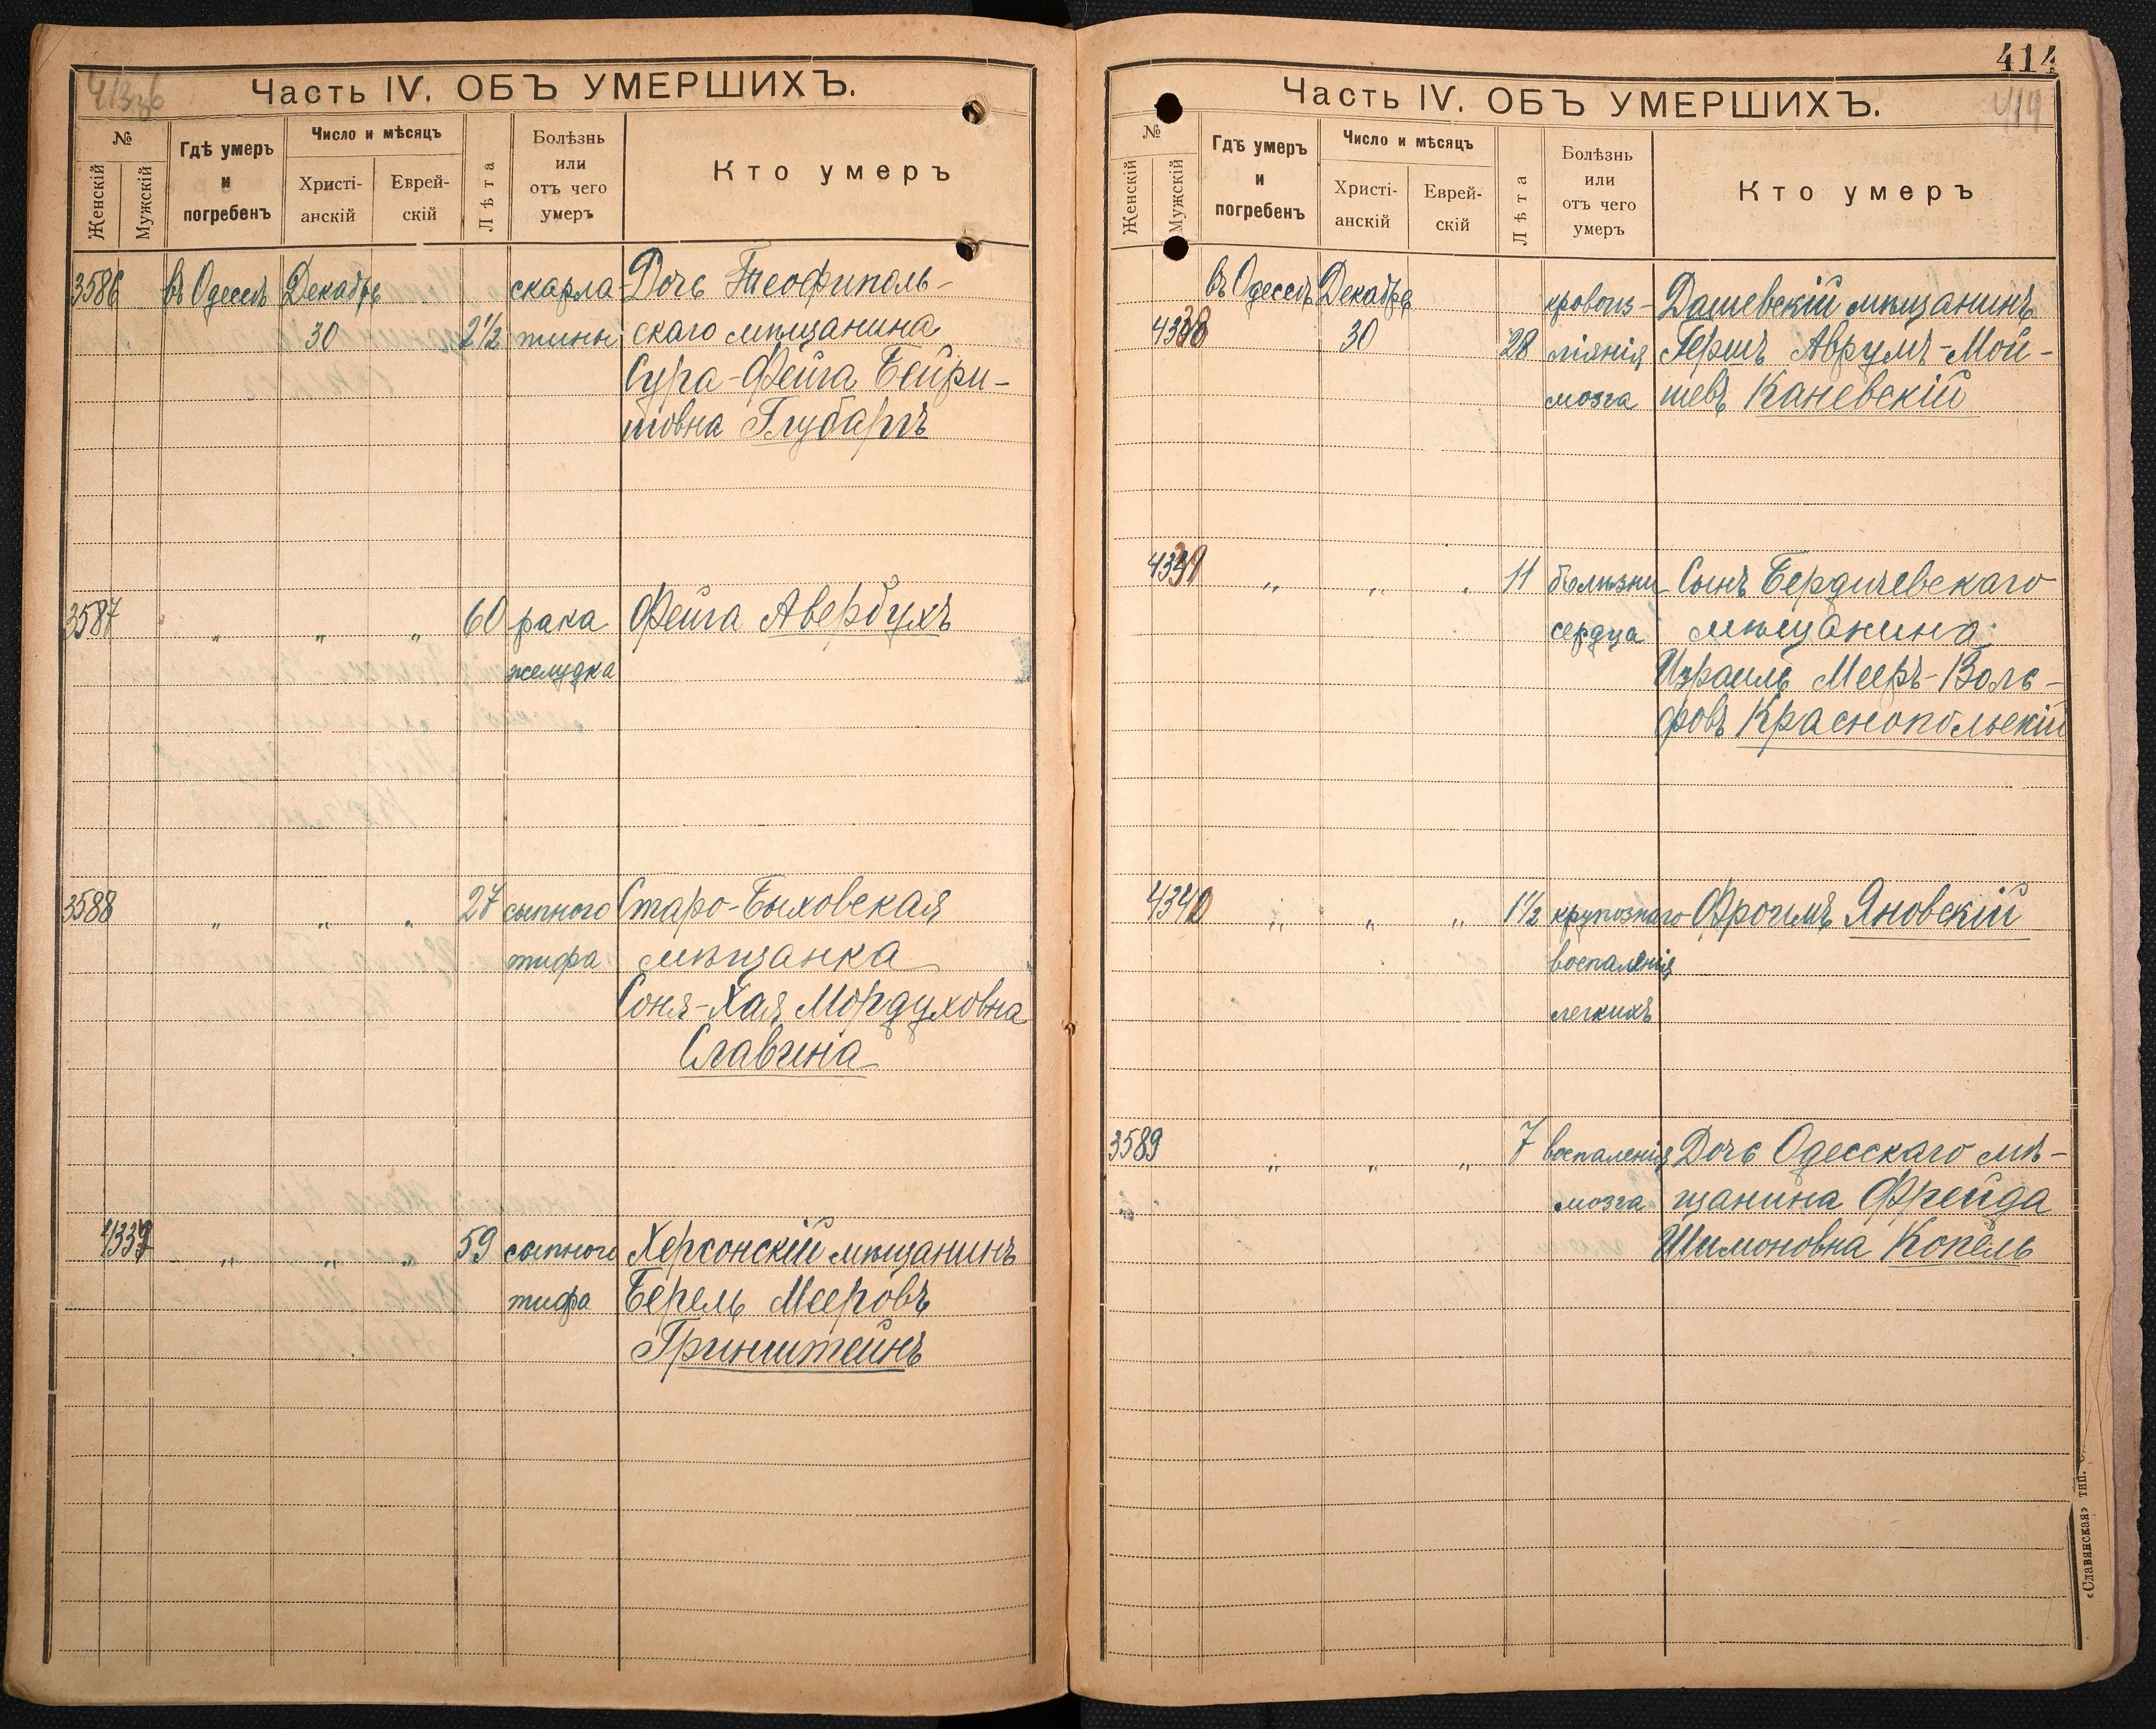 413 об
Часть IV. ОБЪ УМЕРШИХЪ.
№
Женскій
Мужскій
Гдѣ умеръ
и
погребенъ
Число и мѣсяцъ
Христі-
анскій
Еврей-
скій
Лѣта
Болѣзнь
или
отъ чего
умеръ
Кто умеръ
3586 въ Одессѣ Декабрь скарла- Дочь Теофиполь-
30 2½ тины скаго мѣщанина
Сура-Фейга Бейри-
шовна
3587 „ „ „ 60 рака Фейга Авербухъ
желудка
3588 „ „ „ 27 сыпного Старо-Быховская
тифа мѣщанка
Соня-Хая Мордуховна
Славина
4337 „ „ „ 59 сыпного Херсонскій мѣщанинъ
тифа Берель Мееровъ
Гринштейнъ
414
414
Часть IV. ОБЪ УМЕРШИХЪ.
№
Женскій
Мужскій
Гдѣ умеръ
и
погребенъ
Число и мѣсяцъ
Христі-
анскій
Еврей-
скій
Лѣта
Болѣзнь
или
отъ чего
умеръ
Кто умеръ
въ Одессѣ Декабрь кровоиз- Дашевскій мѣщанинъ
4338 30 28 ліянія Гершъ Аврумъ-Мой-
мозга шевъ Каневскій
4339 „ „ „ 11 болѣзни Сынъ Бердичевскаго
сердца мѣщанина
Израиль Мееръ-Воль-
фовъ Краснопольскій
4340 „ „ „ 1½ крупознаго Фроимъ Яновскій
воспаленія
легкихъ
3589 „ „ „ 7 воспаленія Дочь Одесскаго мѣ-
мозга щанина Фрейда
Шимоновна Копель
«Славянская» тип.